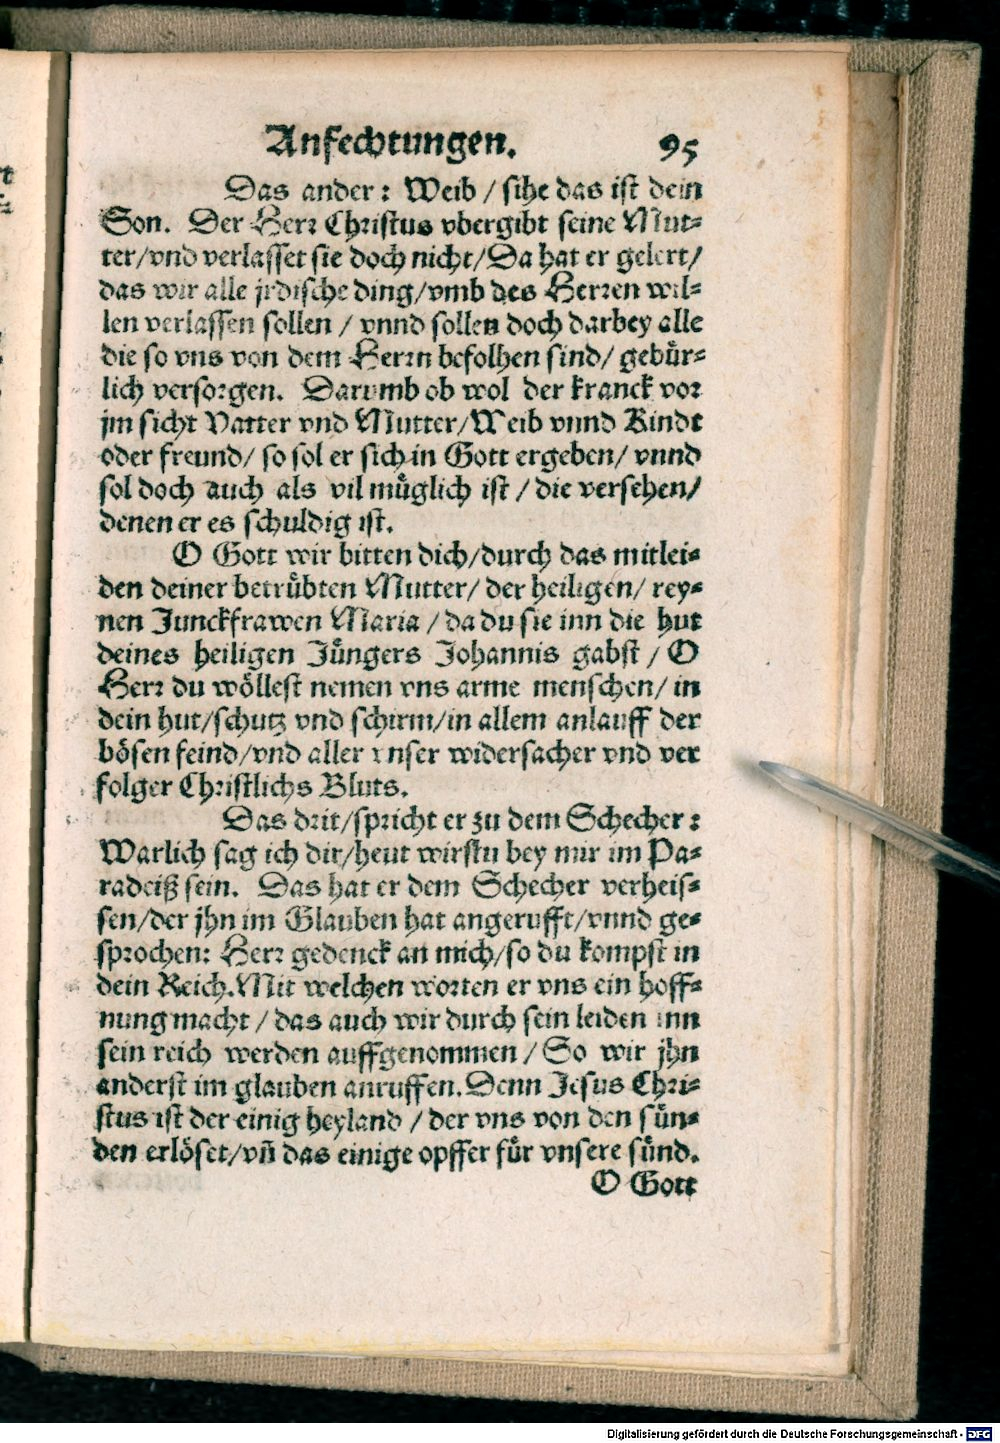 Anfechtungen. 95
Das ander: Weib / sihe das ist dein
Son. Der Herr Christus vbergibt seine Mut-
ter/vnd verlasset sie doch nicht/Da hat er gelert/
das wir alle jrdische ding/vmb des Herren wil-
len verlassen sollen / vnnd sollen doch darbey alle
die so vns von dem Herrn befolhen sind/ gebůr-
lich versorgen. Darumb ob wol der kranck vor
jm sicht Vatter vnd Mutter/Weib vnnd Kindt
oder freund/ so sol er sich in Gott ergeben/ vnnd
sol doch auch als vil můglich ist / die versehen/
denen er es schuldig ist.
O Gott wir bitten dich/durch das mitlei-
den deiner betrůbten Mutter/ der heiligen/ rey-
nen Junckfrawen Maria / da du sie inn die hut
deines heiligen Jůngers Johannis gabst / O
Herr du wöllest nemen vns arme menschen/ in
dein hut/schutz vnd schirm/in allem anlauff der
bösen feind/vnd aller vnser widersacher vnd ver
folger Christlichs Bluts.
Das drit/spricht er zu dem Schecher:
Warlich sag ich dir/heut wirstu bey mir im Pa-
radeiß sein. Das hat er dem Schecher verheis-
sen/der jhn im Glauben hat angerufft/vnnd ge-
sprochen: Herr gedenck an mich/so du kompst in
dein Reich.Mit welchen worten er vns ein hoff-
nung macht / das auch wir durch sein leiden inn
sein reich werden auffgenommen / So wir jhn
anderst im glauben anruffen.Denn Jesus Chri-
stus ist der einig heyland / der vns von den sůn-
den erlöset/vñ das einige opffer fůr vnsere sůnd.
O Gott
Digitalisierung gefördert durch die Deutsche Forschungsgemeinschaft - DFG